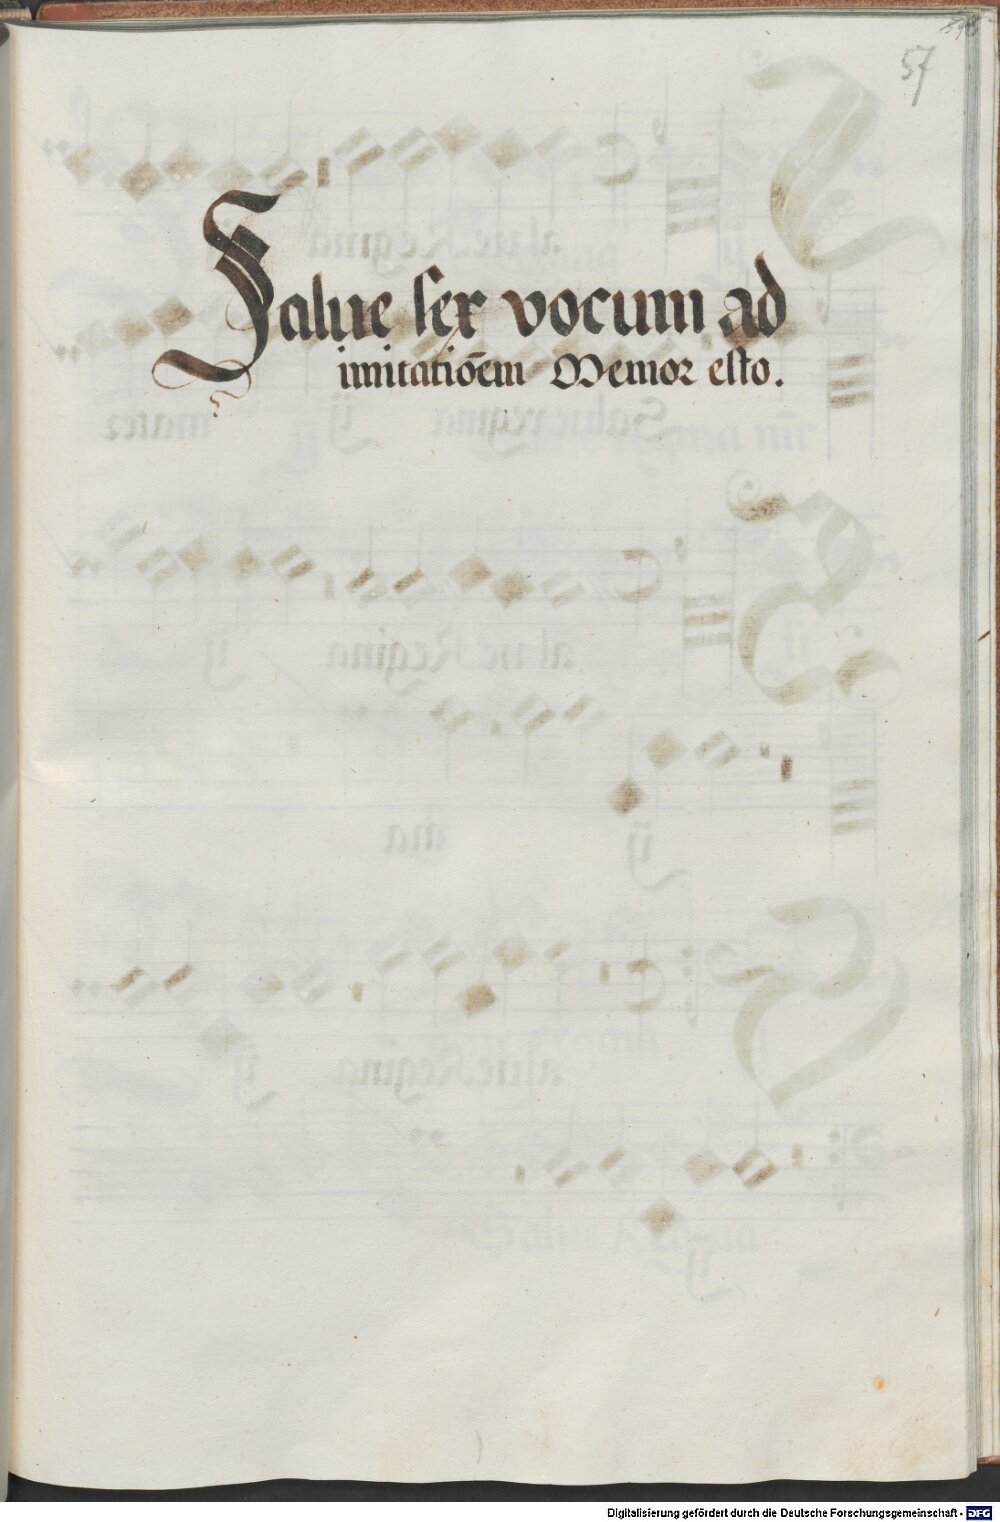 57
Salue sex vocum ad
imitatiōem Memor esto.
Digitalisierung gefördert durch die Deutsche Forschungsgemeinschaft - DFG